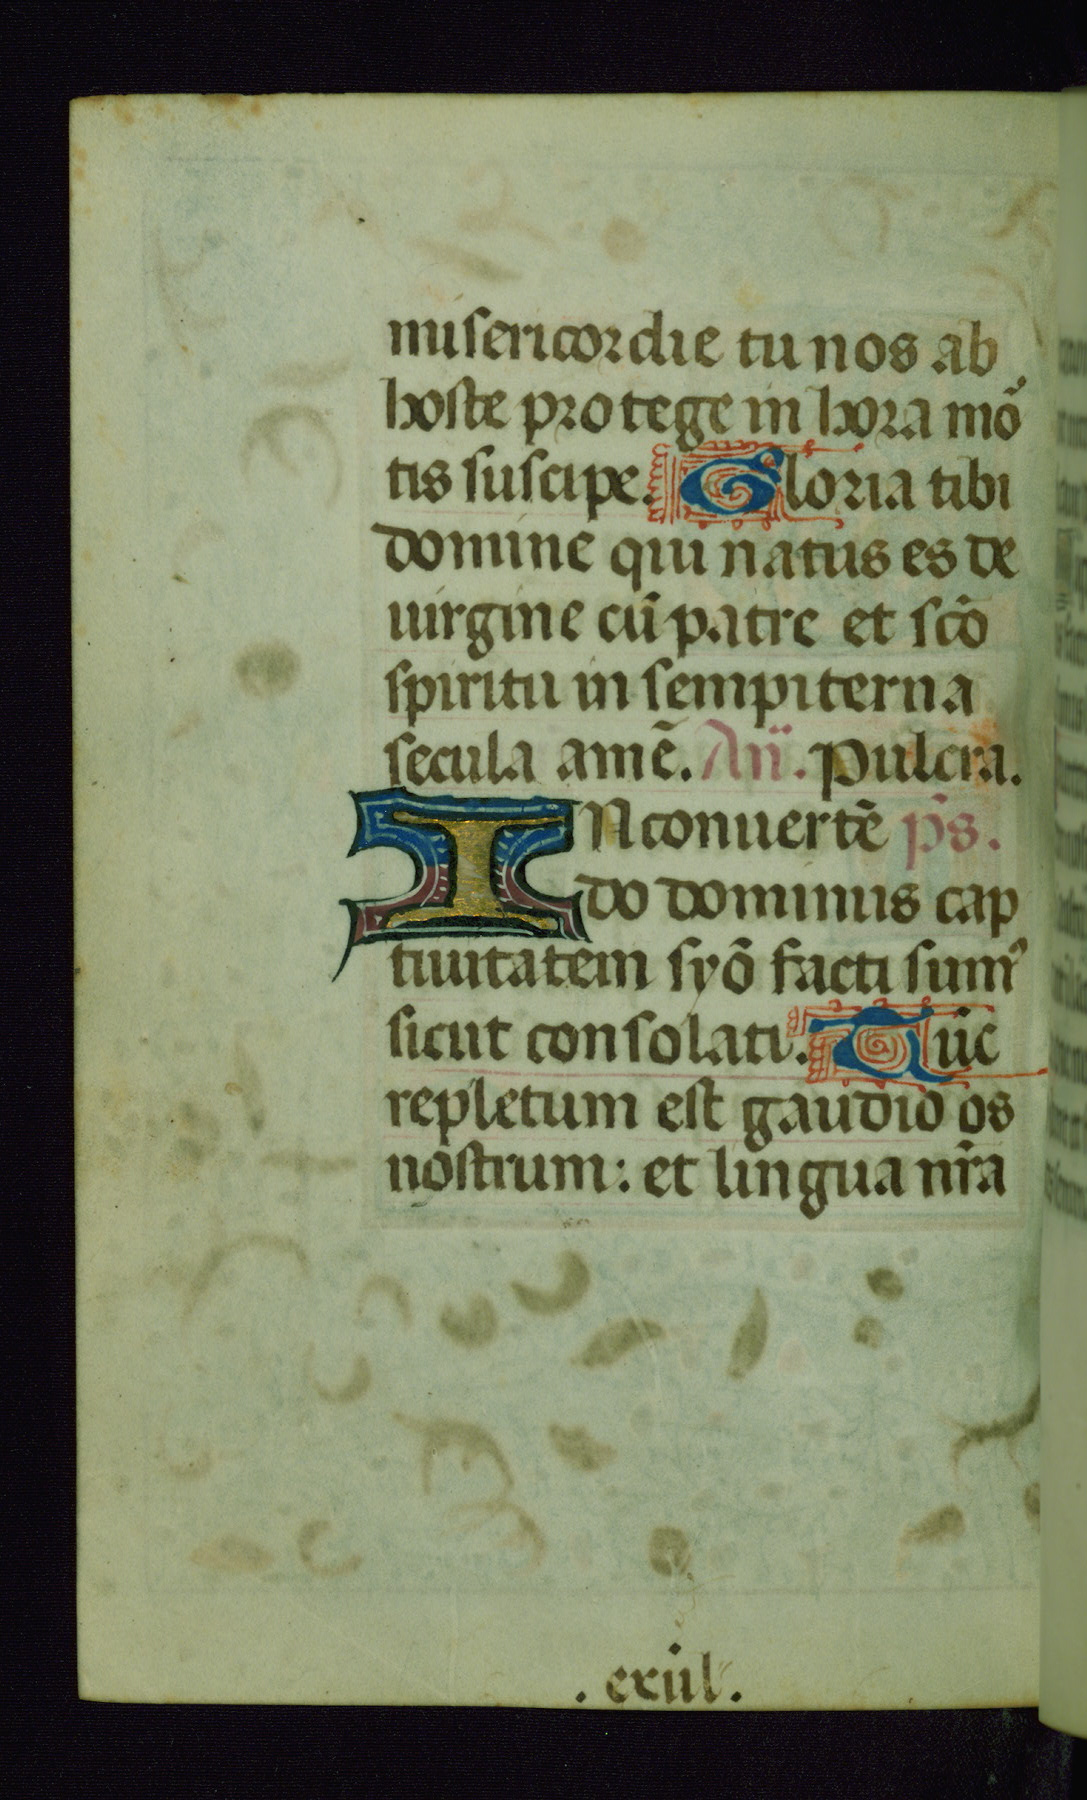 misericordie tu nos ab
hoste protege in hora mõ
tis suscipe. Gloria tibi
domine qui natus es de
uirgine cũ patre et scõ
spiritu in sempiterna
secula amẽ. Añ. Pulcra.
IN conuertẽ p̃s.
do dominus cap
tiuitatem syõ facti sumꝰ
sicut consolati. Tũc
repletum est gaudio os
nostrum: et lingua nr̃a
. exul .